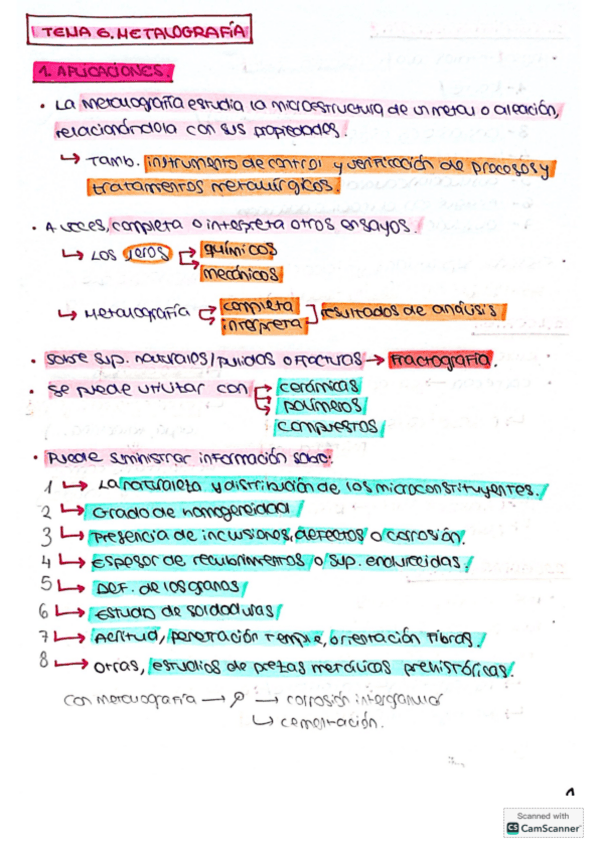 TEMA 6. METALOGRAFÍA
1. APLICACIONES.
• La metalografía estudia la microestructura de un metal o aleación,
relacionándola con sus propiedades.
↳ Tamb. instrumento de control y verificación de procesos y
tratamientos metalúrgicos.
• A veces, completa o interpreta otros ensayos.
↳ Los
químicos
mecánicos
↳ Metalografía
completa
interpreta
resultados de análisis
• Sobre sup. naturales/pulidos o fracturas → Fractografía.
• Se puede utilizar con
cerámicas
polímeros
compuestos
• Puede suministrar información sobre:
1 ↳ La naturaleza y distribución de los microconstituyentes.
2 ↳ Grado de homogeneidad
3 ↳ Presencia de inclusiones, defectos o corrosión.
4 ↳ Espesor de recubrimientos o sup. endurecidas.
5 ↳ Def. de los granos
6 ↳ Estudio de soldaduras
7 ↳ Acritud, penetración temple, orientación fibras.
8 → otras, estudios de piezas metálicas prehistóricas.
Con metalografía → → corrosión intergranular
↳ cementación.
1
Scanned with
CS CamScanner